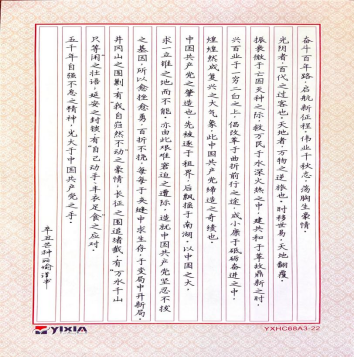 奋斗百年路，启航新征程，伟业千秋志，荡胸生豪情。
光阴者，百代之过客也，天地者，万物之逆旅也。时移世易，天地翻覆。
振衰微于亡国灭种之际，救万民于水深火热之中，建共和于革故鼎新之时，
兴百业于一穷二白之上，倡改革于曲折前行之途，成小康于砥砺奋进之中。
煌煌然成复兴之大气象，此中国共产党缔造之奇绩也。
中国共产党之肇造也，先蹙迹于租界，后飘摇于南湖，以中国之大，
求一立锥之地而不能。亦由此艰难窘迫之遭际，造就中国共产党坚忍不拔
之基因，所以愈挫愈勇，百折不挠，每每于夹缝中求生存，于变局中开新局。
井冈山之围剿，有“我自岿然不动”之豪情，长征之围追堵截，有“万水千山
只等闲”之壮语，延安之封锁，有“自己动手，丰衣足食”之应对。
五千年自强不息之精神，光大于中国共产党之手。
辛丑芒种
YIXIA
YXHC68A3-22